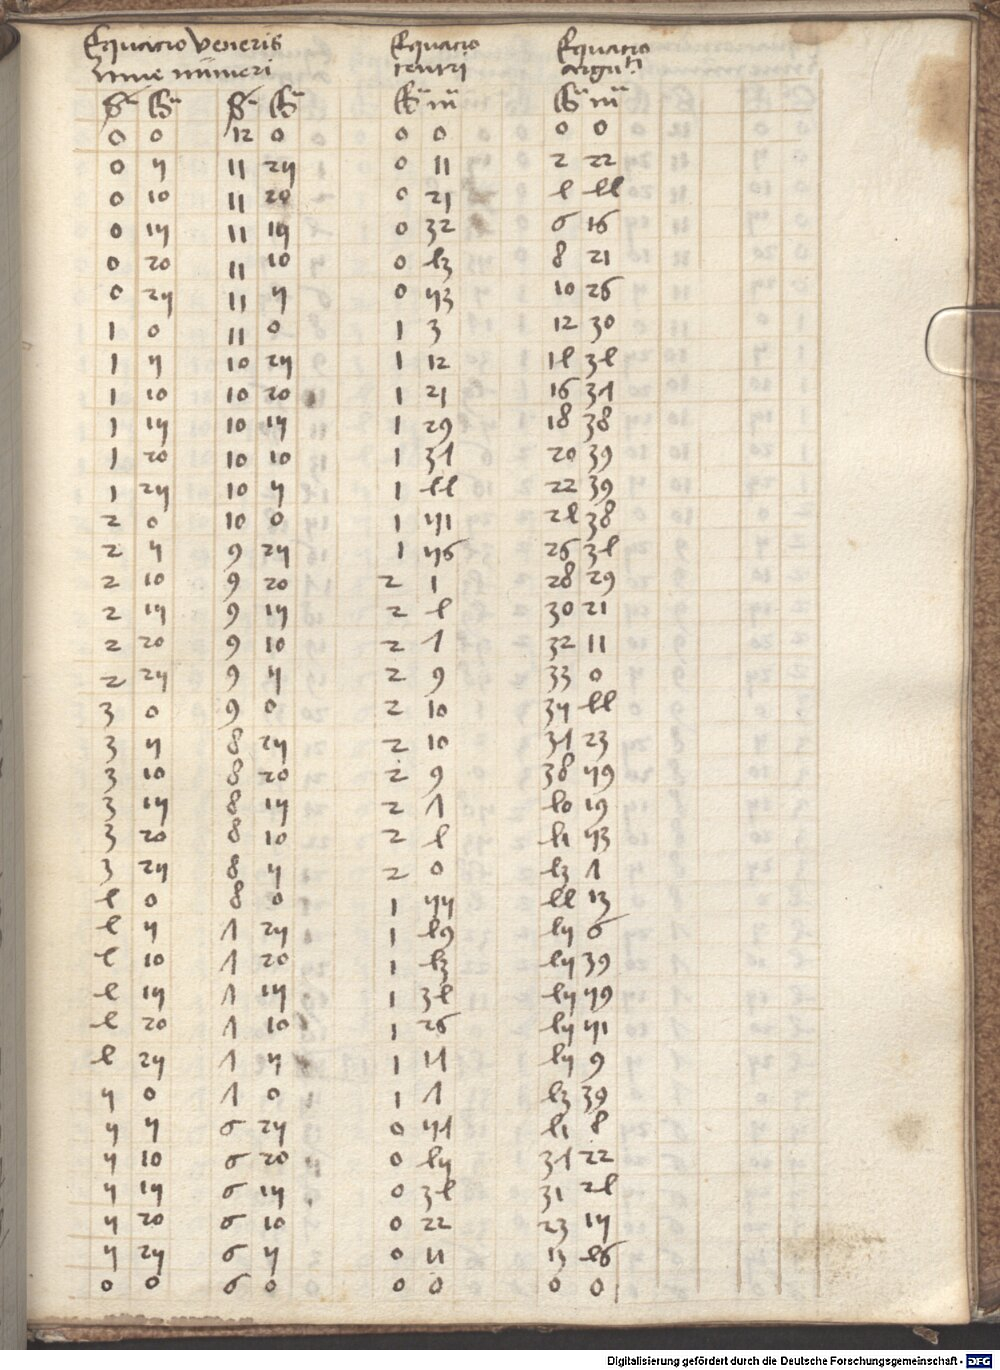 Equatio veneris Equatio Equatio
linee numeri centri argu^ti
S G S G G m G m
0 0 12 0 0 0 0 0
0 5 11 25 0 11 2 22
0 10 11 20 0 21 4 44
0 15 11 15 0 32 6 16
0 20 11 10 0 43 8 21
0 25 11 5 0 53 10 26
1 0 11 0 1 3 12 30
1 5 10 25 1 12 14 34
1 10 10 20 1 21 16 37
1 15 10 15 1 29 18 38
1 20 10 10 1 37 20 39
1 25 10 5 1 44 22 39
2 0 10 0 1 51 24 38
2 5 9 25 1 56 26 34
2 10 9 20 2 1 28 29
2 15 9 15 2 4 30 21
2 20 9 10 2 7 32 11
2 25 9 5 2 9 33 0
3 0 9 0 2 10 35 44
3 5 8 25 2 10 37 23
3 10 8 20 2 9 38 59
3 15 8 15 2 7 40 19
3 20 8 10 2 4 41 53
3 25 8 5 2 0 43 7
4 0 8 0 1 55 44 13
4 5 7 25 1 49 45 6
4 10 7 20 1 43 45 39
4 15 7 15 1 34 45 59
4 20 7 10 1 26 45 51
4 25 7 5 1 17 45 9
5 0 7 0 1 7 43 39
5 5 6 25 0 57 41 8
5 10 6 20 0 45 37 22
5 15 6 15 0 34 31 24
5 20 6 10 0 22 23 15
5 25 6 5 0 11 13 46
0 0 6 0 0 0 0 0
Digitalisierung gefördert durch die Deutsche Forschungsgemeinschaft - DFG